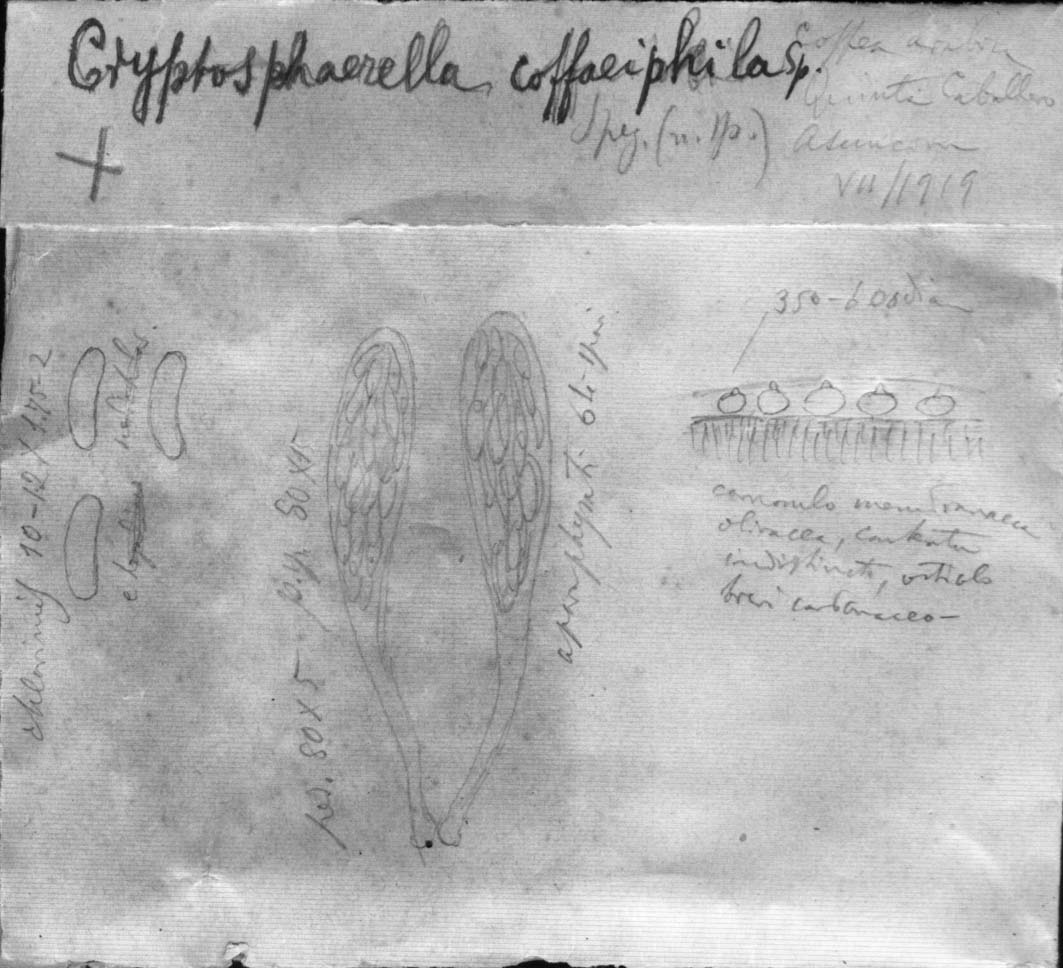 Cryptosphaerella coffaeiphila Sp.
Coffea arabica
Quinta Caballero
Speg. (n. sp.)
Asuncion
VII/1919
350-600 dia
chlorinis 10-12 X 1,75-2
p. sp. 80 X 15
ped. 80 X 5
aparaphysati
membranacea
olivacea,
indistincto, ostiolo
brevi carbonaceo-